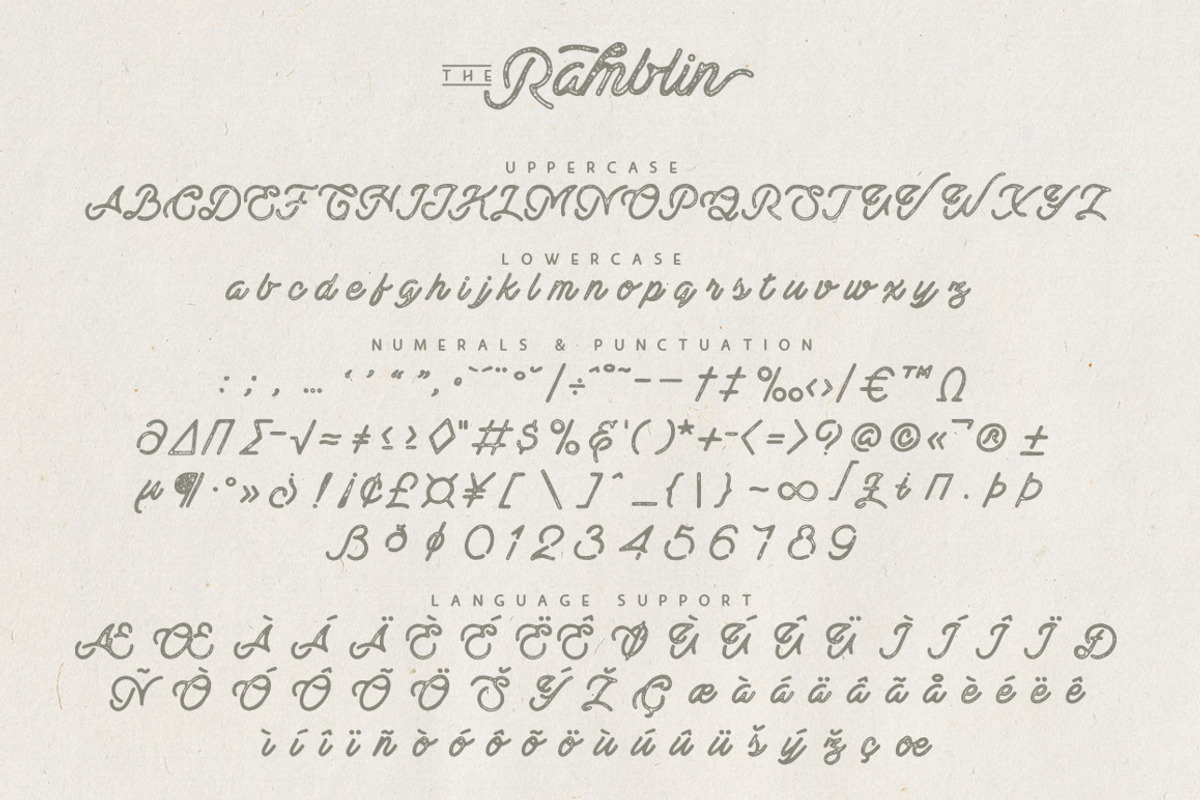 THE Ramblin
UPPERCASE
ABCDEFGHIJKLMNOPQRSTUVWXYZ
LOWERCASE
abcdefghijklmnopqrstuvwxyz
NUMERALS & PUNCTUATION
: ; , … ‘ ’ “ ” ‚ ˛ ˘ ¯ ¨ ° ˘ / ÷ ˆ ° ˜ – — † ‡ ‰ ‹ › / € ™ Ω
∂ ∆ Π ∑ − √ ≈ ≠ ≤ ≥ ◊ " # $ % & ' ( ) * + - < = > ? @ © « ¯ ® ±
µ ¶ · ° » ¿ ! ¡ ¢ £ ¤ ¥ [ \ ] ^ _ { | } ~ ∞ ∫ π . Þ þ
ß ð 0 1 2 3 4 5 6 7 8 9
LANGUAGE SUPPORT
Æ Œ À Á Ä È É Ë Ê Ø Ù Ú Û Ü Ì Í Î Ï Ð
Ñ Ò Ó Ô Õ Ö Š Ý Ž Ç æ à á ä â ã å è é ë ê
ì í î ï ñ ò ó ô õ ö ù ú û ü š ý ž ç œ